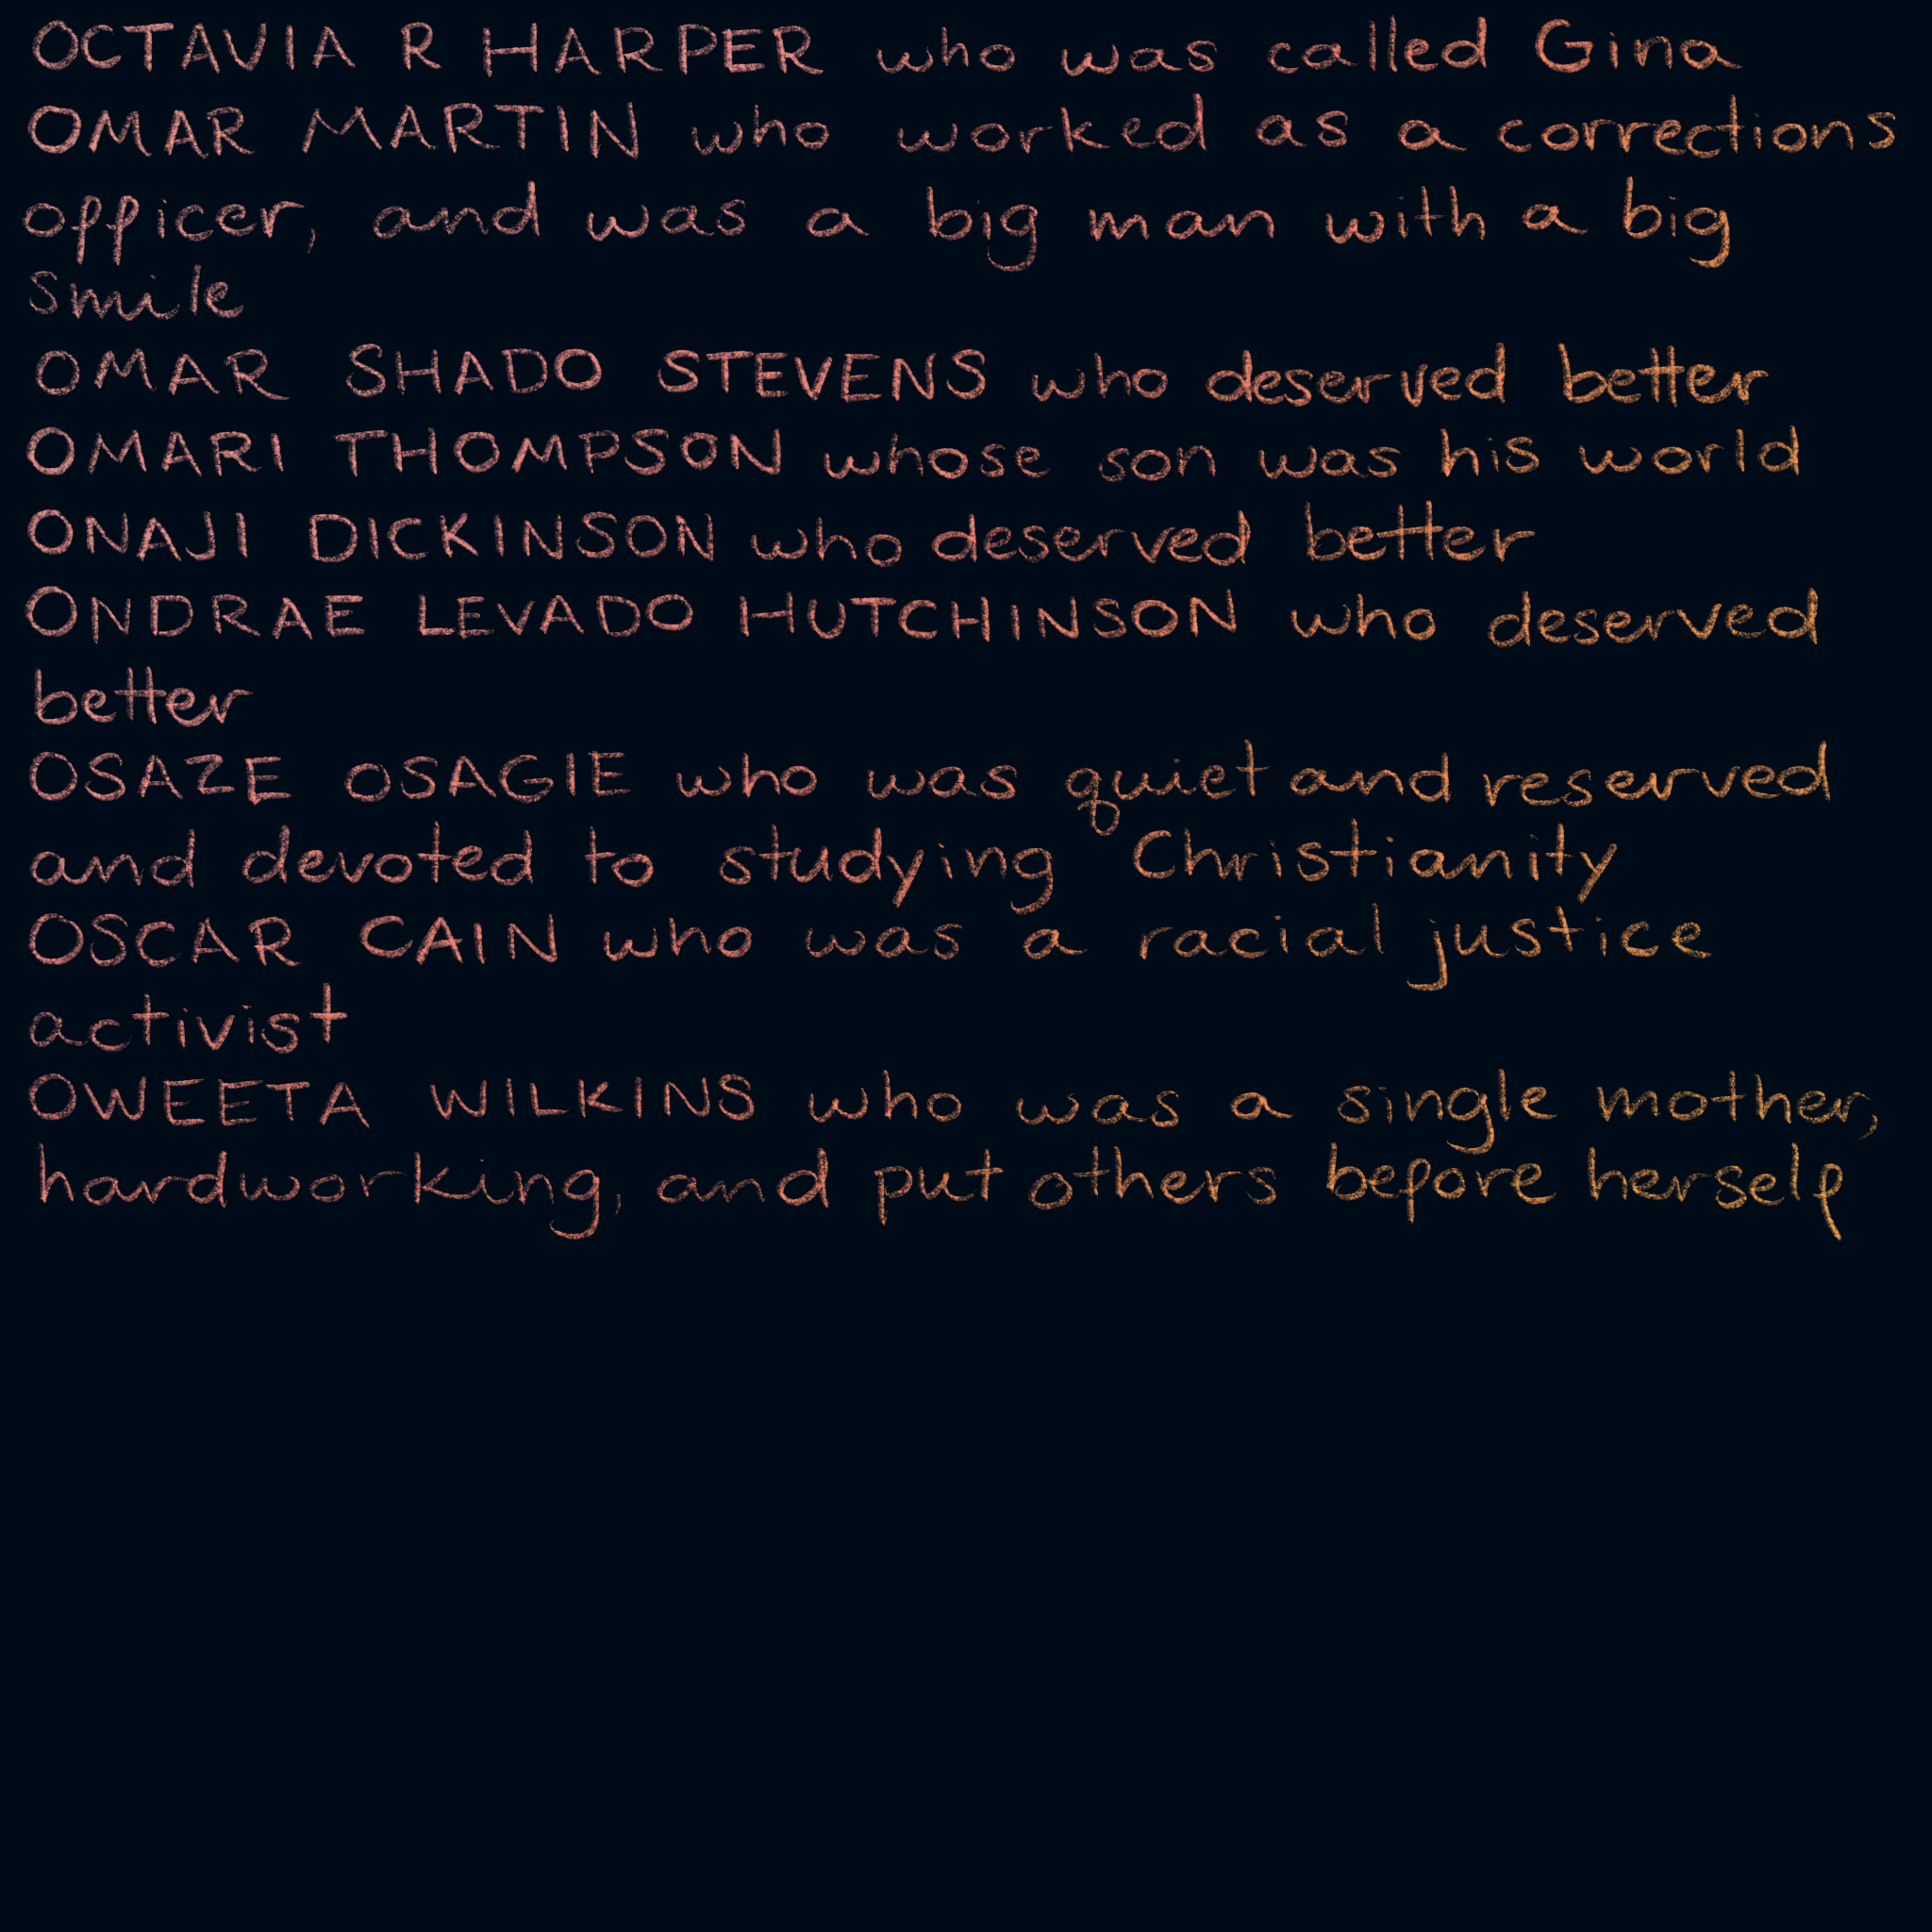 OCTAVIA R HARPER who was called Gina
OMAR MARTIN who worked as a corrections
officer, and was a big man with a big
smile
OMAR SHADO STEVENS who deserved better
OMARI THOMPSON whose son was his world
ONAJI DICKINSON who deserved better
ONDRAE LEVADO HUTCHINSON who deserved
better
OSAZE OSAGIE who was quiet and reserved
and devoted to studying Christianity
OSCAR CAIN who was a racial justice
activist
OWEETA WILKINS who was a single mother,
hardworking, and put others before herself